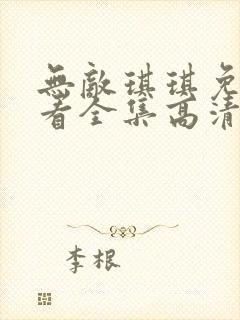 無敵琪琪免
看全集高清
李根